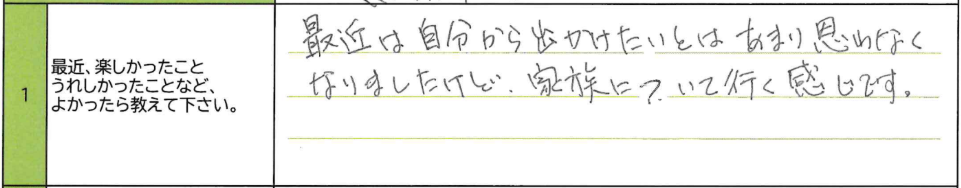 1
最近、楽しかったこと
うれしかったことなど、
よかったら教えて下さい。
最近は自分から出かけたいとはあまり思わなく
なりましたけど、家族について行く感じです。